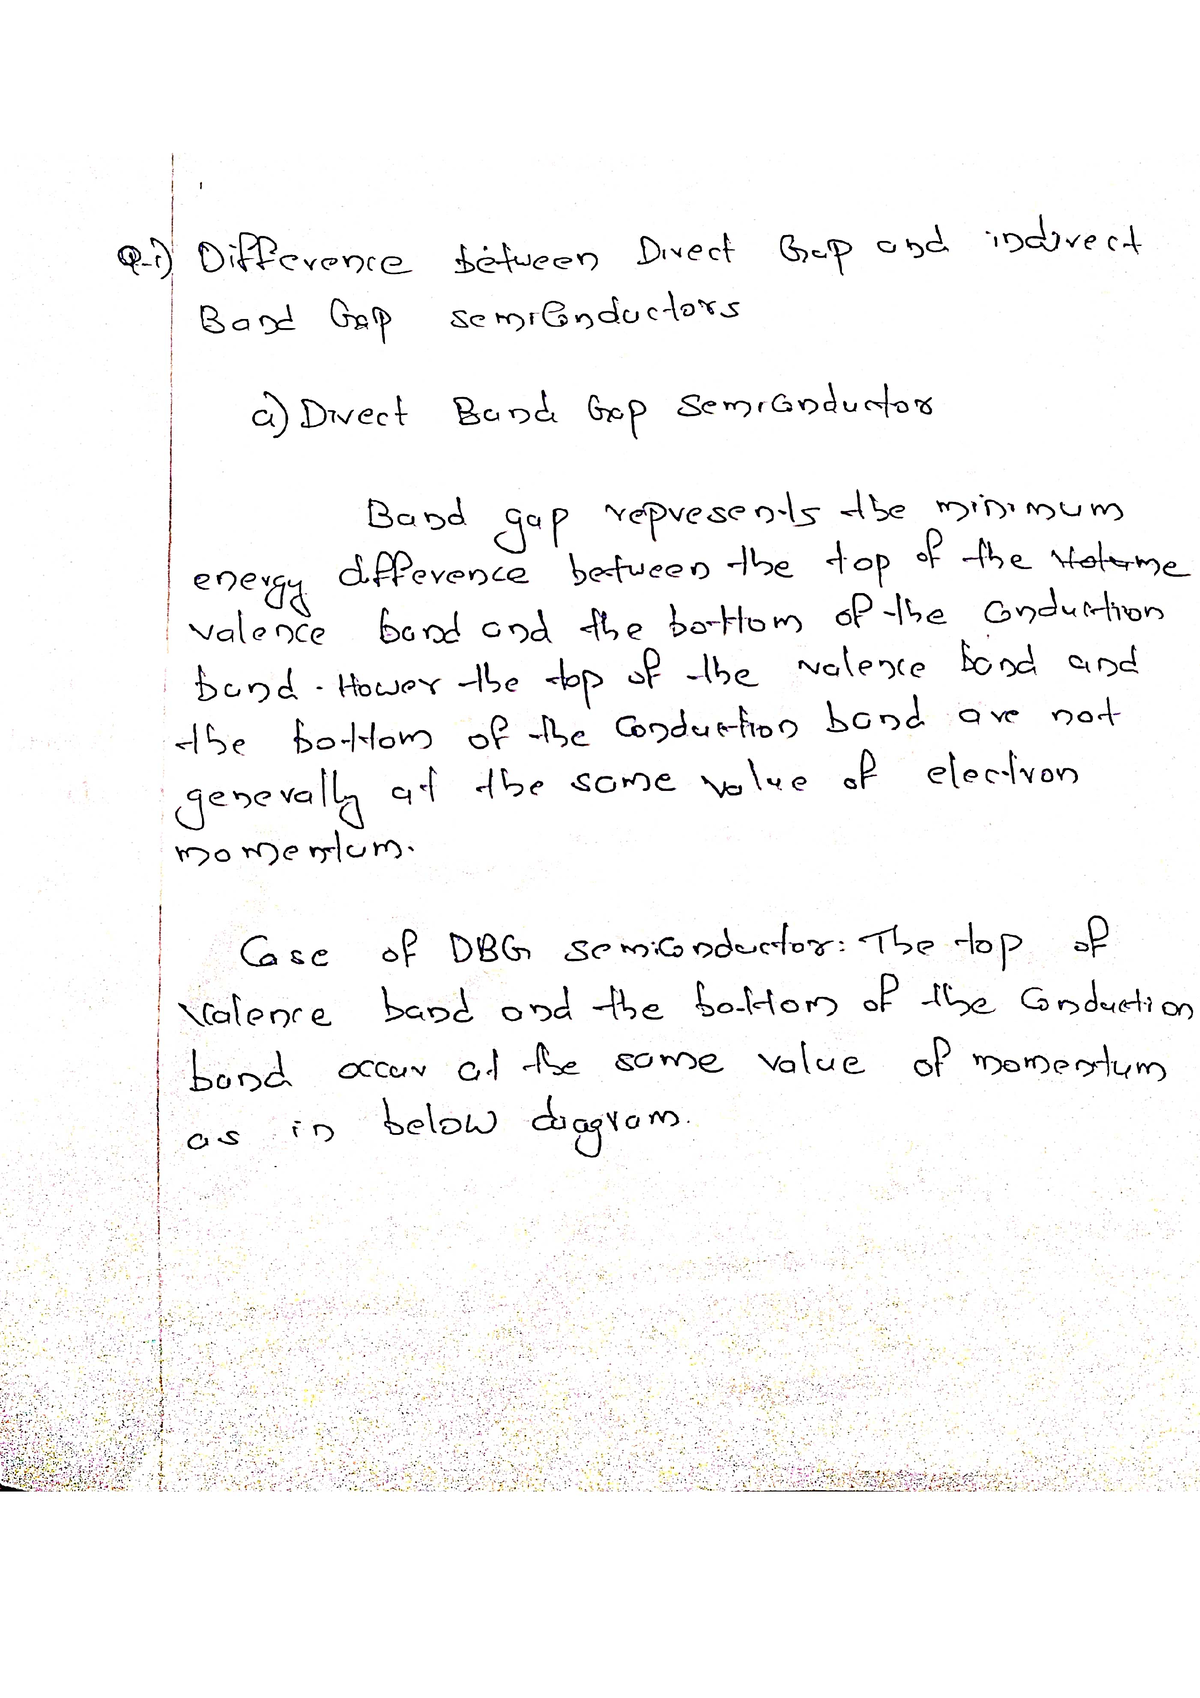 Q-1) Difference between Direct Gap and indirect
Band Gap semiconductors
a) Direct Band Gap semiconductor
Band gap represents the minimum
energy difference between the top of the
valence band and the bottom of the conduction
band. Hower the top of the valence band and
the bottom of the conduction band are not
generally at the same value of electron
momentum.
Case of DBG semiconductor: The top of
valence band and the bottom of the conduction
band occur at the same value of momentum
as in below diagram.